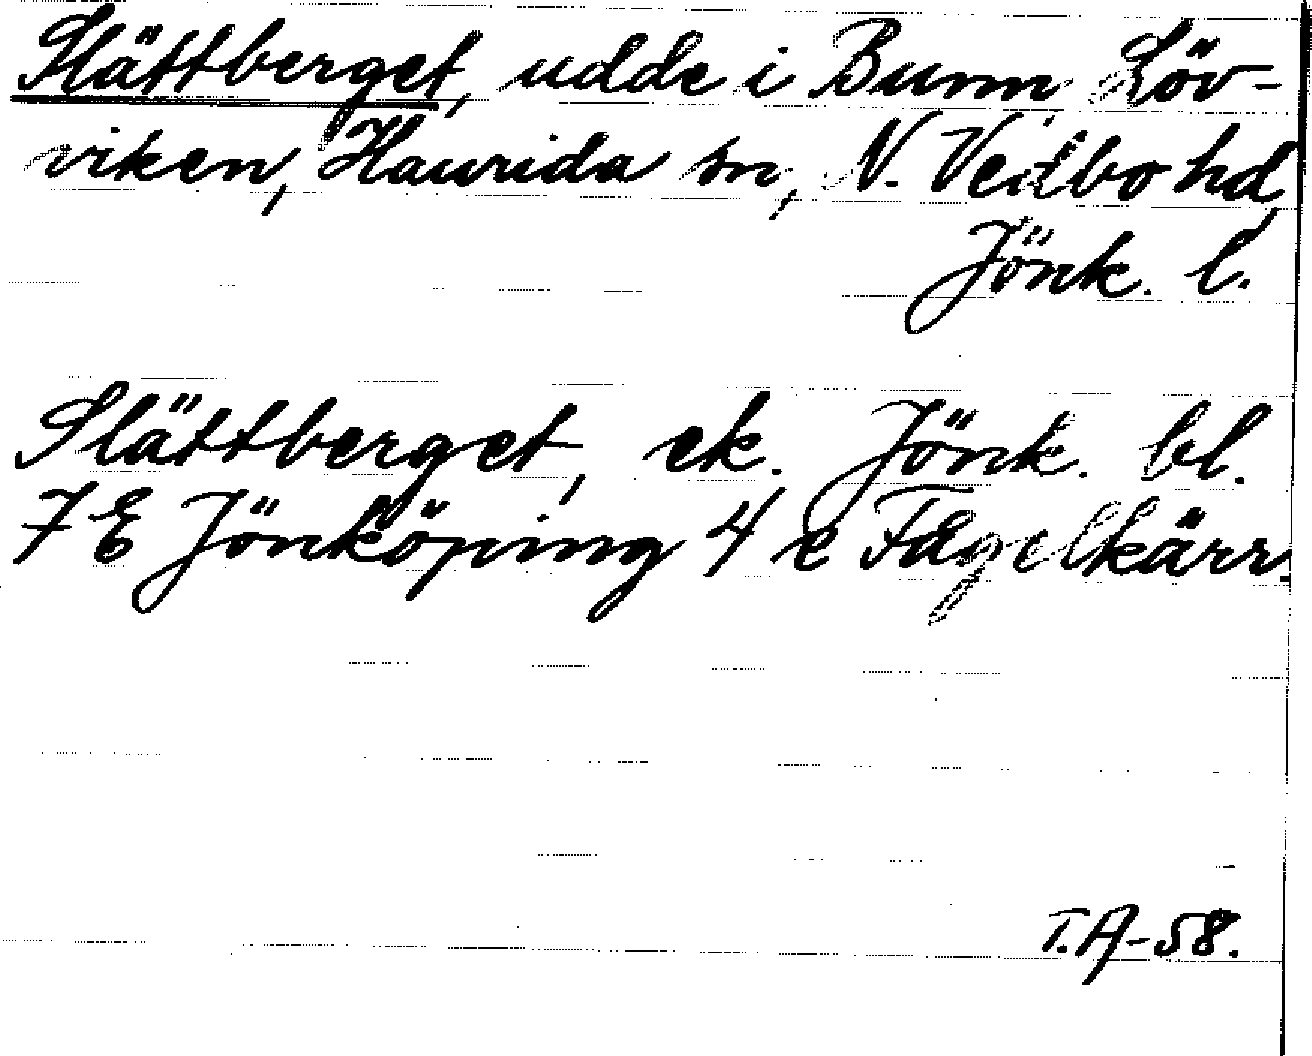 Slättberget, udde i Bunn, Löv-
viken, Haurida sn, N. Vedbo hd,
Jönk. l.
Slättberget, ek. Jönk. bl.
7 E Jönköping 4 e Fågelkärr.
T.A-58.